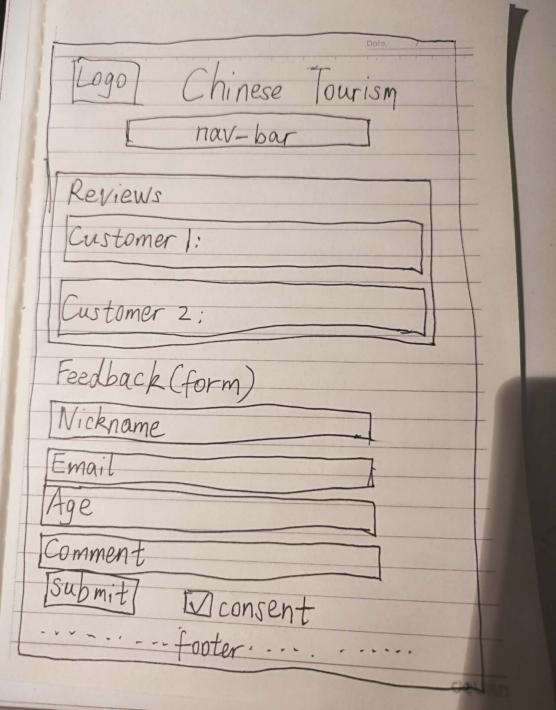 Date.
Logo
Chinese Tourism
nav-bar
Reviews
Customer 1:
Customer 2:
Feedback (form)
Nickname
Email
Age
Comment
submit
consent
footer